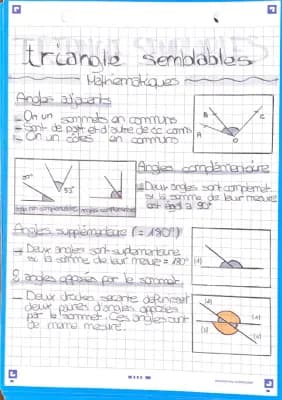 triangle semblables
Mathématiques
Angles adjacents
- On un sommets en communs
- Sont de part et d'autre de cc coms
- On un côtés en communs
B
C
A
O
37°
53°
Angles complémentaire
- Deux angles sont complemet.
si la somme de leur mesure
est égal à 90°
Angles supplémentaire (= 180°)
- Deux angles sont suplementaire
si la somme de leur mesure = 180°
2 angles opposés par le sommet
- Deux droites secante definisset
deux paires d'angles opposées
par le sommet. Ces angles sont
de meme mesure.
(d)